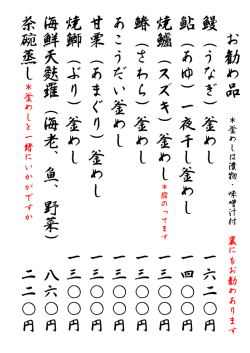 お勧め品
*釜めしは漬物・味噌汁付 裏にもお勧めあります
鰻(うなぎ)釜めし 一六二〇円
鮎(あゆ)一夜干し釜めし 一四〇〇円
焼鱸(スズキ)釜めし *脂のってます 一三〇〇円
鰆(さわら)釜めし 一三〇〇円
あこうだい釜めし 一三〇〇円
甘栗(あまぐり)釜めし 一三〇〇円
焼鰤(ぶり)釜めし 一三〇〇円
海鮮天麩羅(海老、魚、野菜) 八六〇円
茶碗蒸し *釜めしと一緒にいかがですか 二二〇円